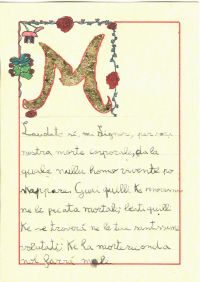 M
Laudato si, mi Signor, per sora
nostra morte corporale, da la
quale nullu homo vivente po
skappare. Guai quilli ke
ne le peccata mortali; beati quilli
ke se troverà ne le tue santissime
voluntati; ke la morte seconda
nol farrà male